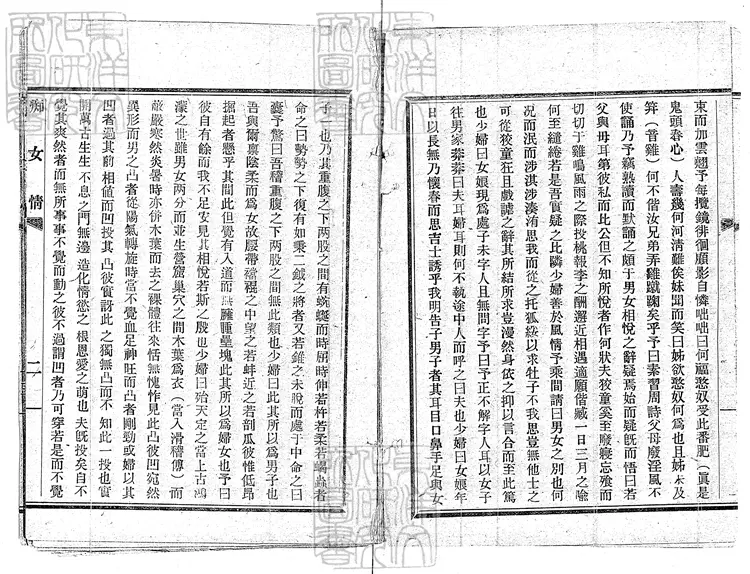 東而加雲翹予每攬鏡徘徊顧影自憐咄咄曰何福憨奴受此番肥（眞是
鬼頭春心）人壽幾何河清難俟妹聞而笑曰姊欲憨奴何爲也且姊未及
笄（音雞）何不偕汝兄弟弄雞蹴踘矣乎予曰素習周詩父母廢淫風不
使誦乃予竊熟讀而默誦之頗于男女相悅之辭疑焉始而疑旣而悟曰若
父與母耳弟彼私而此公但不知所悅者作何狀夫狡童奚至廢寢忘飧而
切切于雞鳴風雨之際投桃報李之酬邂近相遇適願偕臧一日三月之喻
何至繾綣若是吾實疑之比隣少婦善於風情予乘間請曰男女之別也何
况而泯而涉淇涉溱洧思我而從之托狐綏以求牡子不我思豈無他士之
可從狡童狂且戲謔之辭其所結所求豈漫然身依之抑以言合而至此篤
也少婦曰女娘現爲處子未字人且無問字予曰予正不解字人耳以女子
往男家莽莽曰夫耳婦耳則何不執途中人而呼之曰夫也少婦曰女娘年
日以長無乃懷春而思吉士誘乎我明告子男子者其耳目口鼻手足與女
子一也乃其重腹之下兩股之間有蜿蜒而時屈時伸若杵若柔若蝎蟲者
命之曰勢勢之下復有如乘二鉞之將者又若錐之未脫而處于中命之曰
囊予驚曰吾稽重腹之下兩股之間無此類也少婦曰此其所以爲男子也
吾與爾禀陰柔而爲女故腰帶襠裩之中望之若蚌近之若剖瓜彼惟低昻
掘起者懸乎其間此但覺有入道而臃腫壘塊此其所以爲婦女也予曰
彼自有餘而我不足安見其相悅若斯之殷也少婦曰殆天定之當上古鴻
濛之世雖男女兩分而並生營窟巢穴之間木葉爲衣（當入滑稽傳）而
嚴寒然炎暑時亦併木葉而去之裸體往來恬無愧怍見此凸彼凹宛然
異形而男之凸者從陽氣轉旋時當不覺血足神旺而凸者剛勁或婦以其
凹者過其前相値而凹投其凸彼實訝此之獨無凸而不知此一投也實
開萬古生生不息之門無邊造化情慾之根恩愛之萌也夫旣投矣自不
覺其爽然者而無所事事不覺而動之彼不過謂凹者乃可穿若是而不覺
痴女情
二